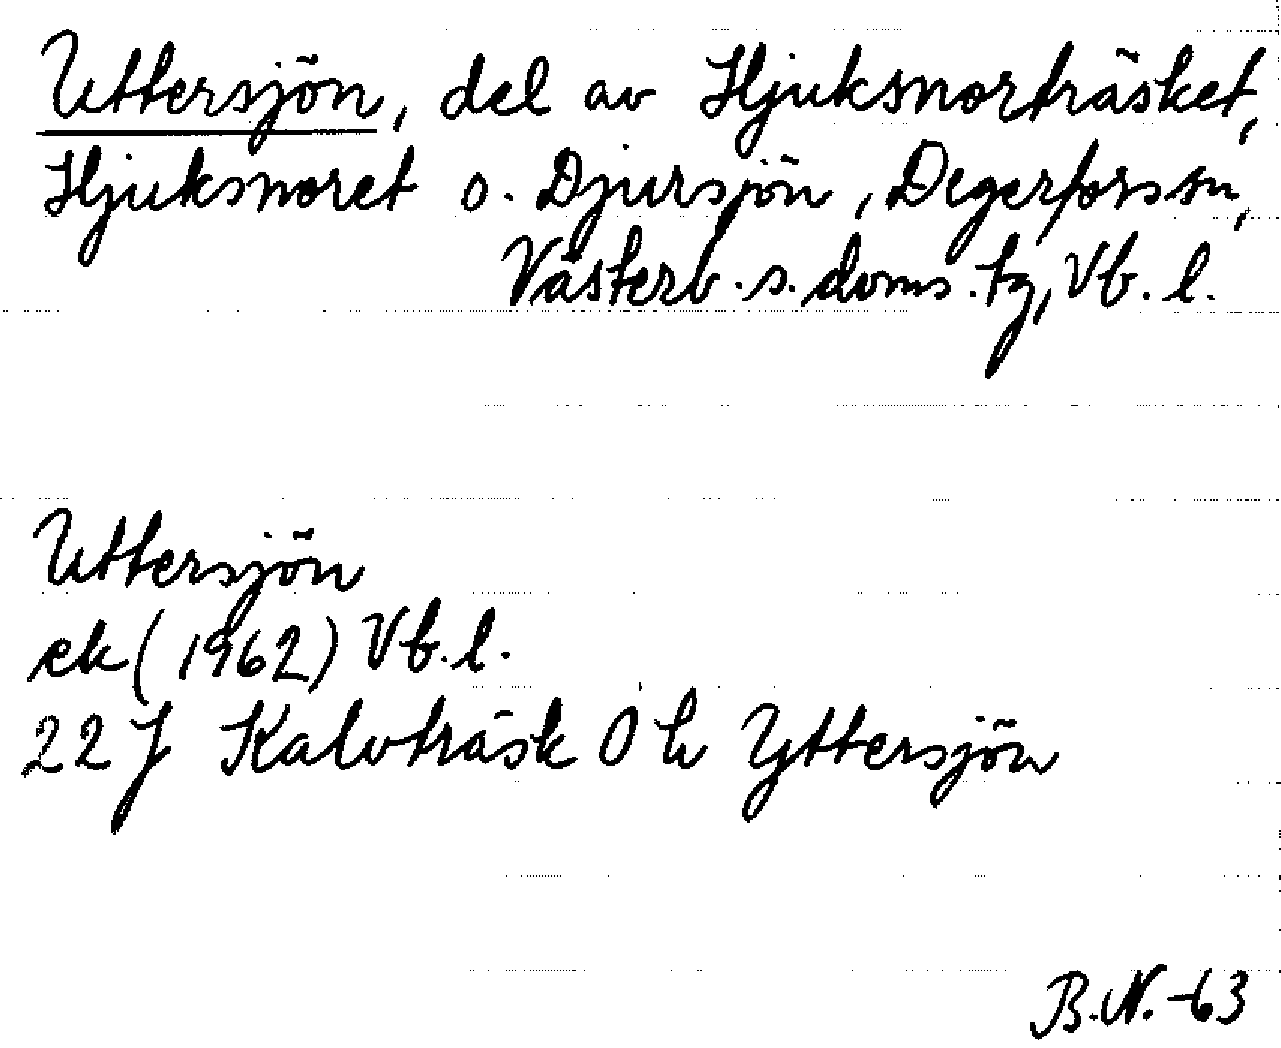 Uttersjön, del av Hjuksnorträsket,
Hjuksnoret o. Djursjön, Degerfors sn,
Västerb. s. doms. tg, Vb. l.
Uttersjön
ek (1962) Vb. l.
22 J Kalvträsk 0 h Yttersjön
B.N. -63